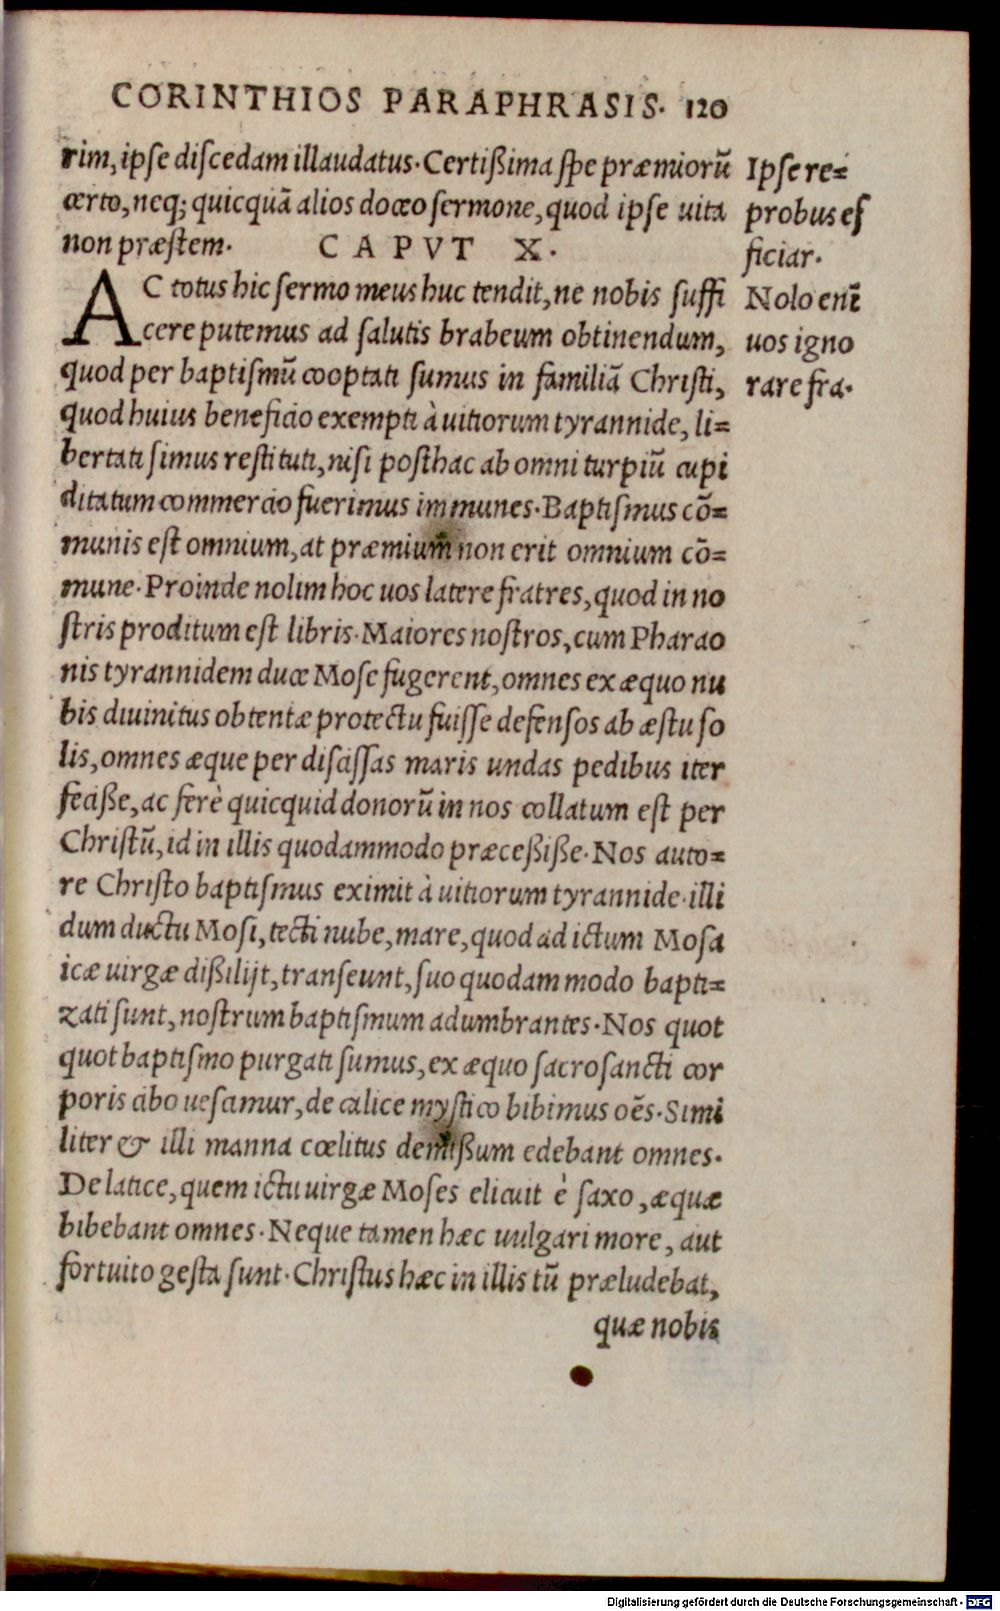 CORINTHIOS PARAPHRASIS. 120
rim, ipse discedam illaudatus. Certißima spe præmiorū
certo, neq; quicquā alios doceo sermone, quod ipse uita
non præstem.
CAPVT X.
AC totus hic sermo meus huc tendit, ne nobis suffi
cere putemus ad salutis brabeum obtinendum,
quod per baptismū cooptati sumus in familiā Christi,
quod huius beneficio exempti à uitiorum tyrannide, li=
bertati simus restituti, nisi posthac ab omni turpiū cupi
ditatum commercio fuerimus immunes. Baptismus cō=
munis est omnium, at præmium non erit omnium cō=
mune. Proinde nolim hoc uos latere fratres, quod in no
stris proditum est libris. Maiores nostros, cum Pharao
nis tyrannidem duce Mose fugerent, omnes ex æquo nu
bis diuinitus obtentæ protectu fuisse defensos ab æstu so
lis, omnes æque per discissas maris undas pedibus iter
fecisse, ac ferè quicquid donorū in nos collatum est per
Christū, id in illis quodammodo præceßiße. Nos auto=
re Christo baptismus eximit à uitiorum tyrannide. illi
dum ductu Mosi, tecti nube, mare, quod ad ictum Mosa
icæ uirgæ dißilijt, transeunt, suo quodam modo bapti=
zati sunt, nostrum baptismum adumbrantes. Nos quot
quot baptismo purgati sumus, ex æquo sacrosancti cor
poris cibo uescamur, de calice mystico bibimus oēs. Simi
liter & illi manna cœlitus demißum edebant omnes.
De latice, quem ictu uirgæ Moses elicuit è saxo, æquæ
bibebant omnes. Neque tamen hæc uulgari more, aut
fortuito gesta sunt. Christus hæc in illis tū præludebat,
quæ nobis
Ipse re=
probus ef
ficiar.
Nolo enī
uos igno
rare fra.
Digitalisierung gefördert durch die Deutsche Forschungsgemeinschaft - DFG